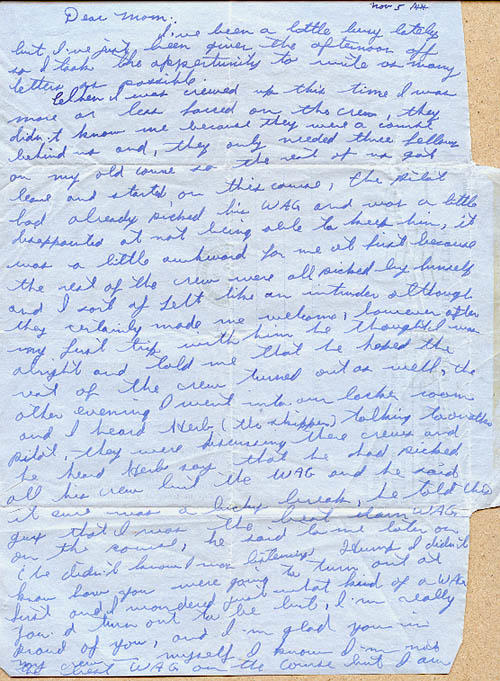 Nov 5/44
Dear Mom;
I've been a little busy lately
but I've just been given the afternoon off
so I took the opportunity to write as many
letters as possible.
When I was crewed up this time I was
more or less forced on the crew, they
didn't know me because they were a course
behind us and, they only needed three fellows
on my old course so the rest of us got
leave and started on this course, the pilot
had already picked his WAG and was a little
disappointed at not being able to keep him, it
was a little awkward for me at first because
the rest of the crew were all picked by himself
and I sort of felt like an intruder although
they certainly made me welcome, however after
my first trip with him he thought I was
alright and told me that he hoped the
rest of the crew turned out as well, the
other evening I went into our locker room
and I heard Herb (the skipper) talking to another
pilot, they were discussing there crews and
he heard Herb say that he had picked
all his crew but the WAG and he said
it sure was a lucky break, he told this
guy that I was the best damn WAG
on the course, he said to me later on
(he didn't know I was listening) Hump I didn't
know how you were going to turn out at
first and I wondered just what kind of a WAG
you'd turn out to be but, I'm really
proud of you, and I'm glad you're in
my crew — myself I know I'm not
the best WAG on the course but I am